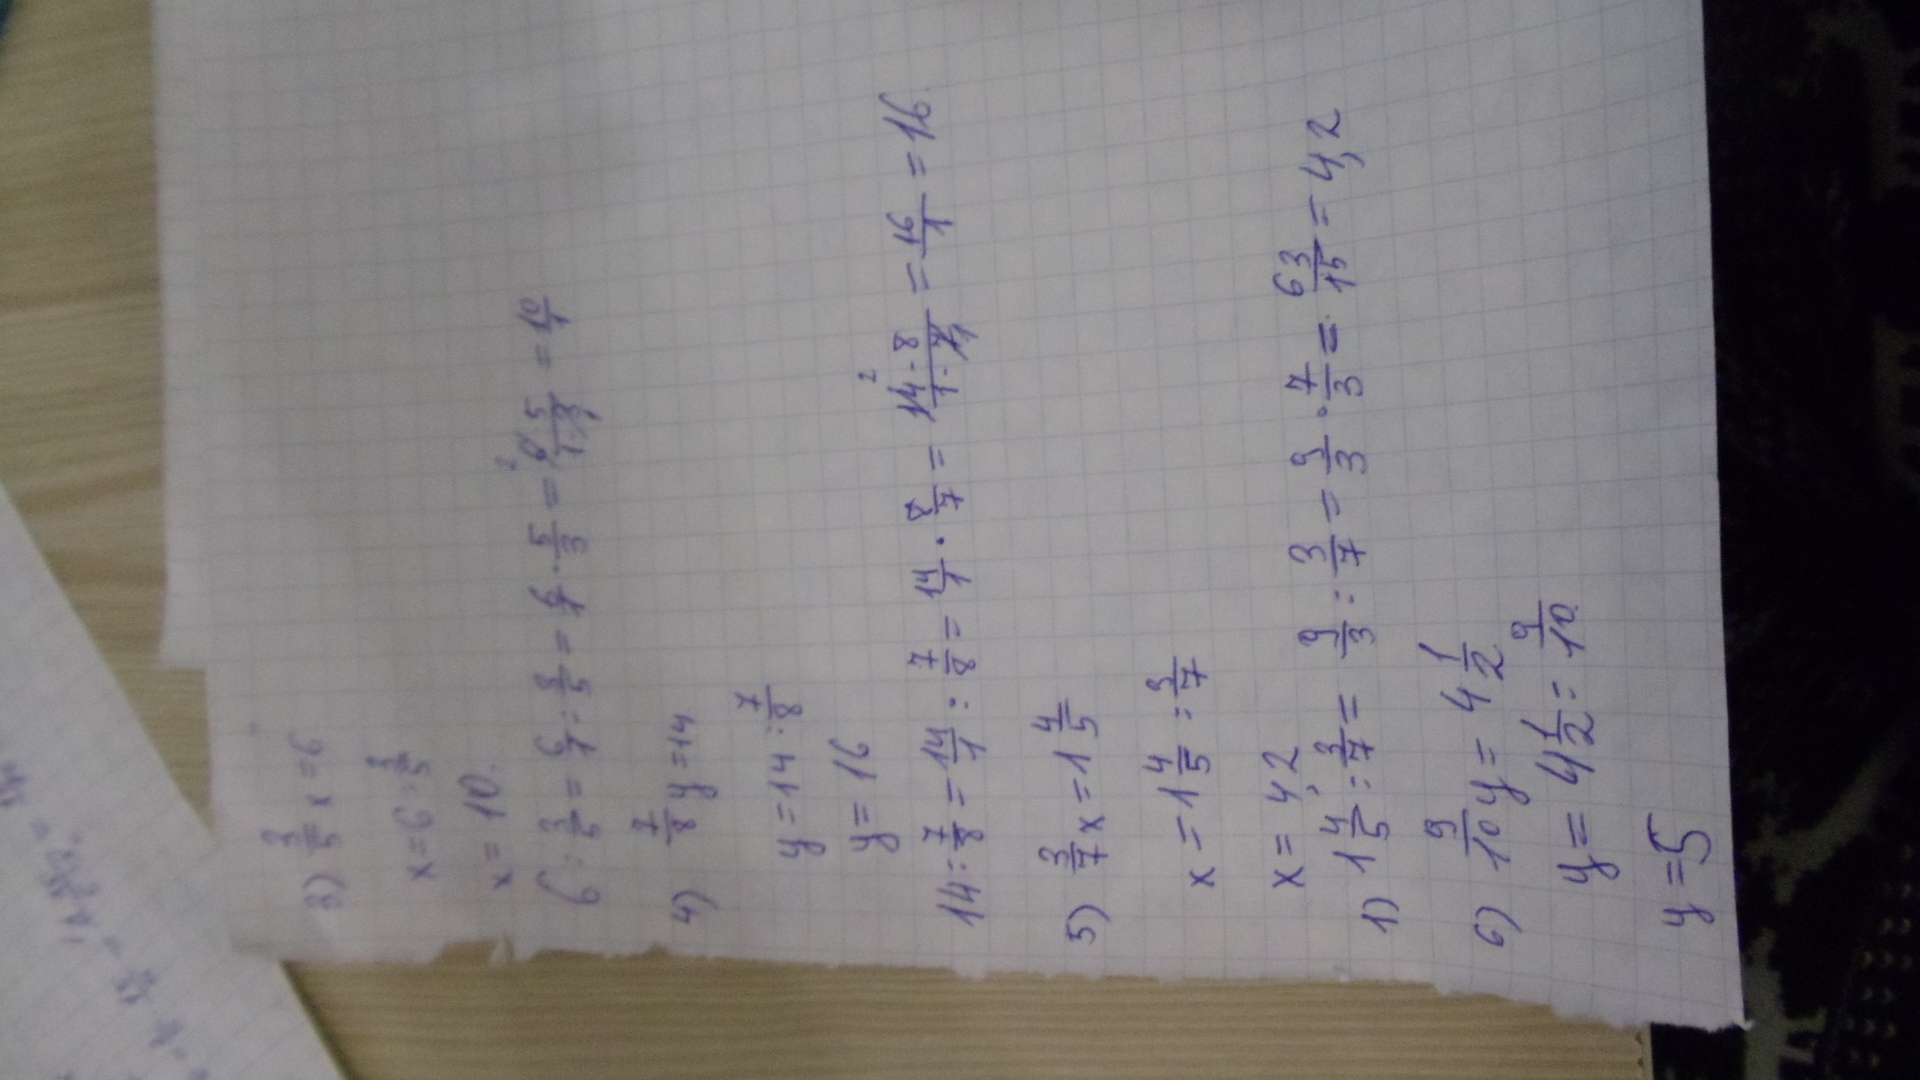 3) 3/5 x = 6
x = 6 : 3/5
x = 10.
6 : 3/5 = 6/1 : 3/5 = 6/1 · 5/3 = 6² 5/1·3₁ = 10/1
4) 7/8 y = 14
y = 14 : 7/8
y = 16
14 : 7/8 = 14/1 : 7/8 = 14/1 · 8/7 = 14² · 8/1 · 7₁ = 16/1 = 16
5) 3/7 x = 1 4/5
x = 1 4/5 : 3/7
x = 4,2
1) 1 4/5 : 3/7 = 9/3 : 3/7 = 9/3 · 7/3 = 63/15 = 4,2
6) 9/10 y = 4 1/2
y = 4 1/2 : 9/10.
y = 5